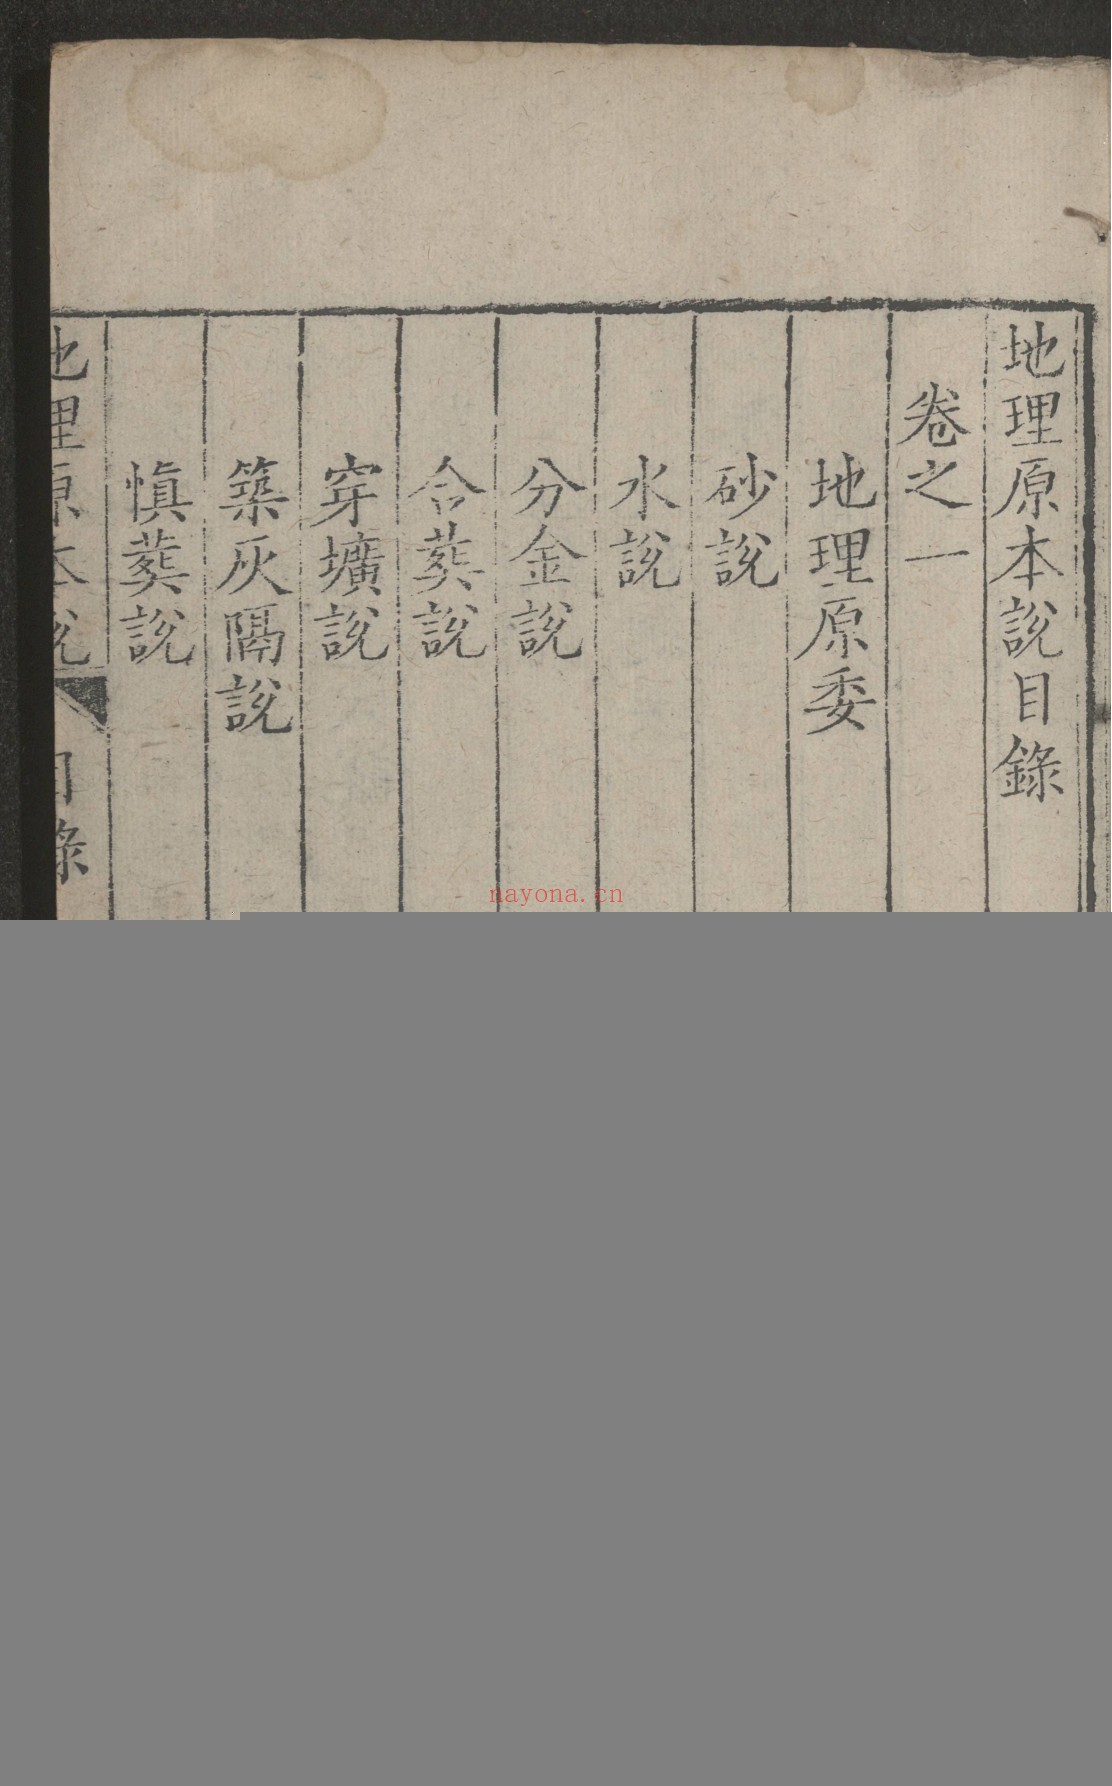 地理原本說目錄
卷之一
地理原委
砂說
水說
分金說
合葬說
穿壙說
築灰隔說
慎葬說
地理原本說 目錄
nayona.cn